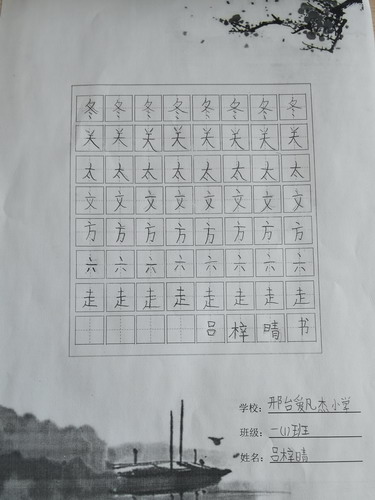 冬冬冬冬冬冬冬冬
关关关关关关关关
太太太太太太太太
文文文文文文文文
方方方方方方方方
六六六六六六六六
走走走走走走走走
吕梓晴书
学校：邢台爱凡杰小学
班级：一(1)班
姓名：吕梓晴